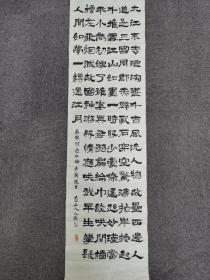 大江東去浪淘盡千古風流人物故壘西邊人
道是三國周郎赤壁亂石穿空驚濤拍岸捲起
千堆雪江山如畫一時多少豪傑遙想公瑾當
年小喬初嫁了雄姿英發羽扇綸巾談笑間檣
櫓灰飛烟滅故國神遊多情應笑我早生華髮
人間如夢一樽還江月
蘇軾詞念奴嬌赤壁懷古